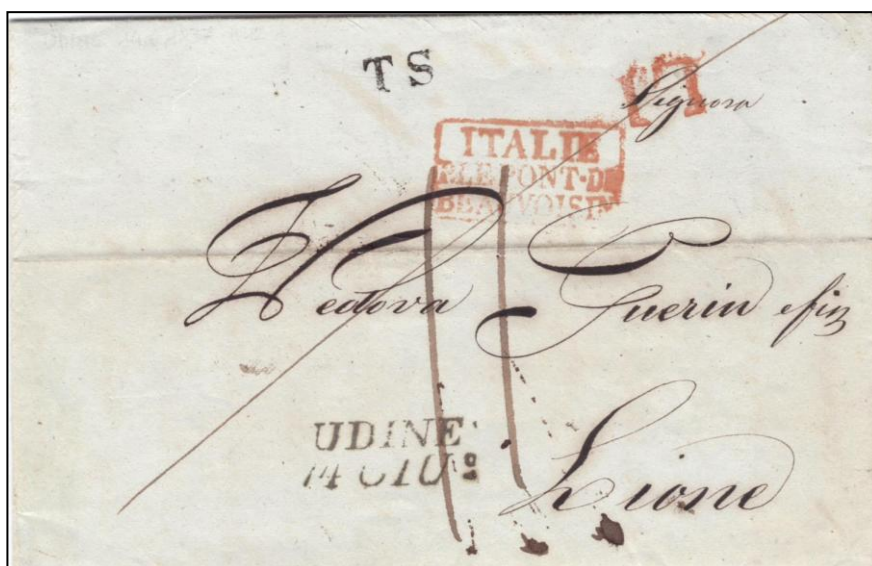 TS
Signora
ITALIE
P.LE PONT-DE
BEAUVOISIN
Vedova Guerin e fig
UDINE
14 GIU⁰
Lione